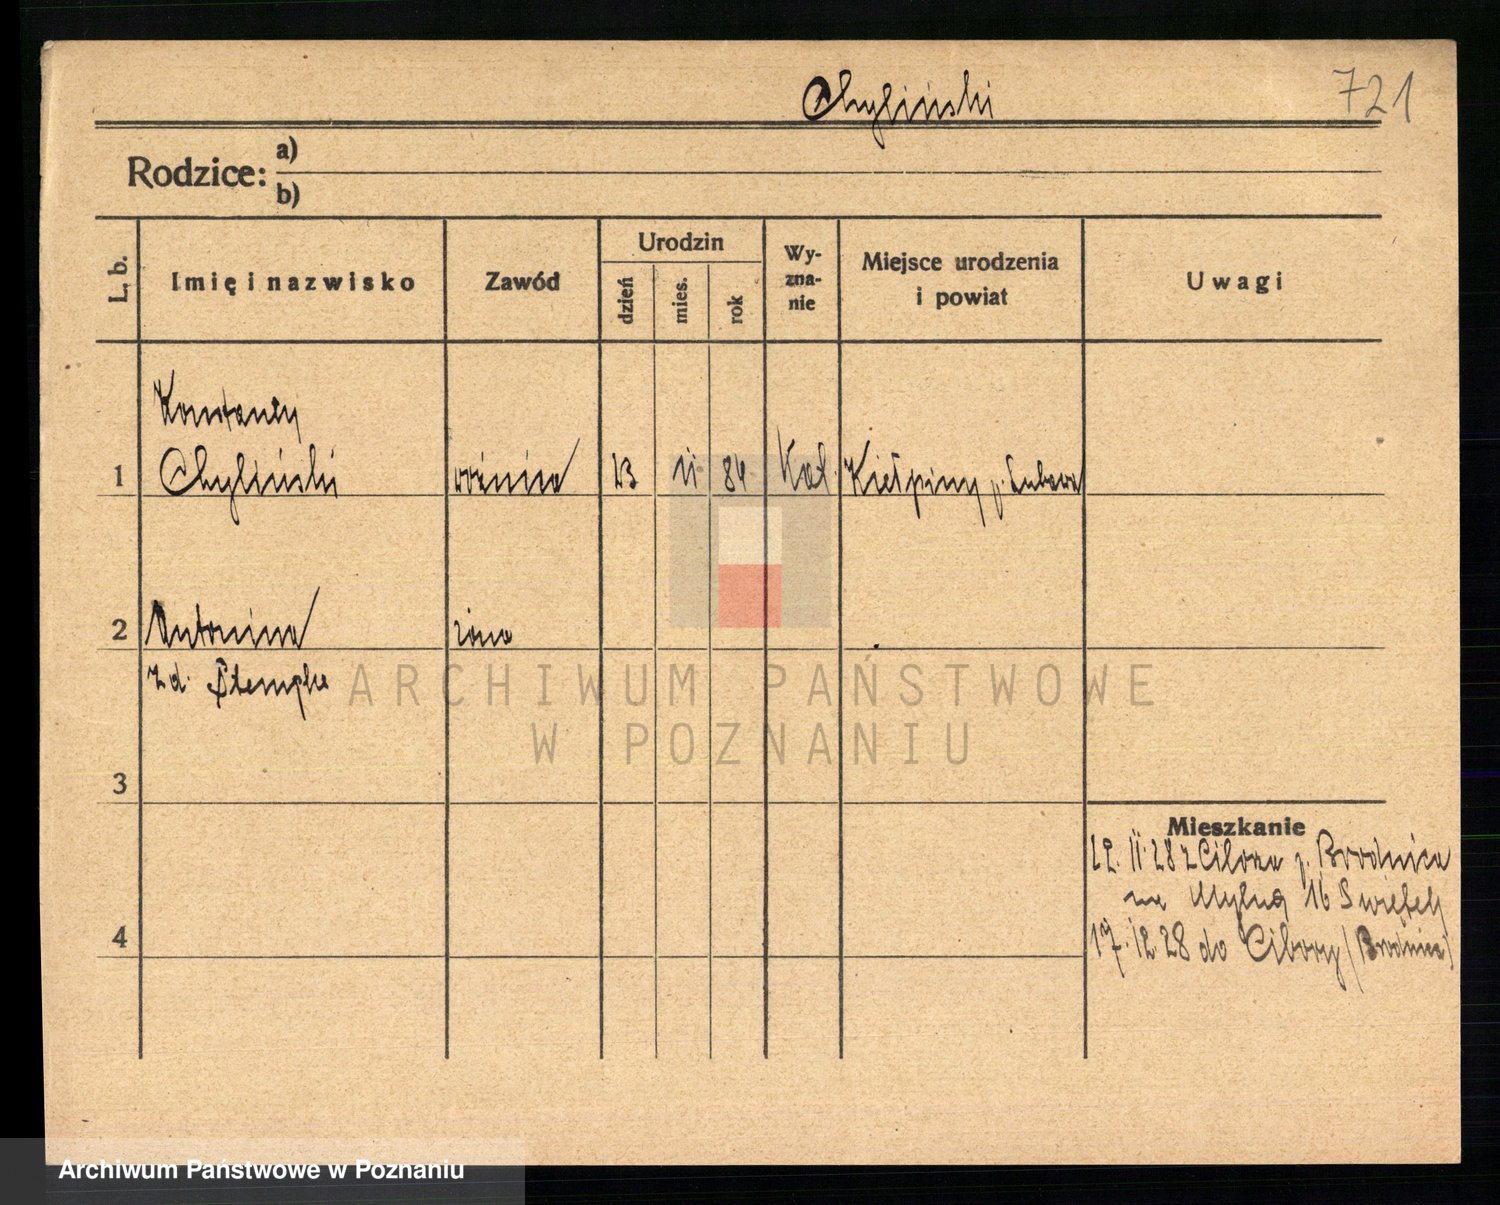 Chyliński 721
Rodzice: a)
b)
L. b. Imię i nazwisko Zawód Urodzin dzień mies. rok Wy-
zna-
nie Miejsce urodzenia
i powiat Uwagi
Konstanty
1 Chyliński woźnica 23 11 84 Kat. Kiełpiny p. Lubawa
2 Antonina żona
zd. Stempka
ARCHIWUM PAŃSTWOWE
W POZNANIU
3
Mieszkanie
11. 28 z Cibora p. Brodnica
na Młyńską 16
4
17. 12. 28 do Cibory (Brodnica)
Archiwum Państwowe w Poznaniu